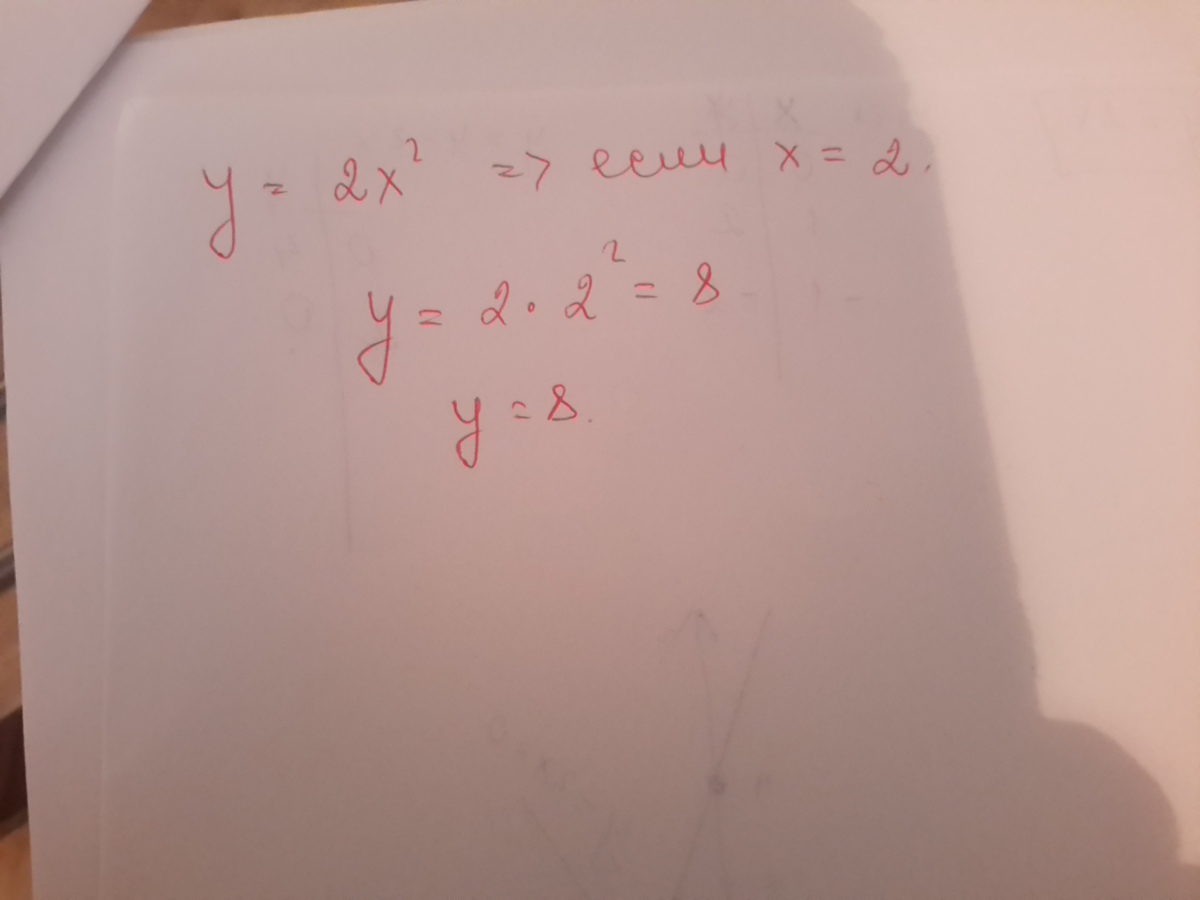 y = 2x² => если x = 2.
y = 2 · 2² = 8
y = 8.